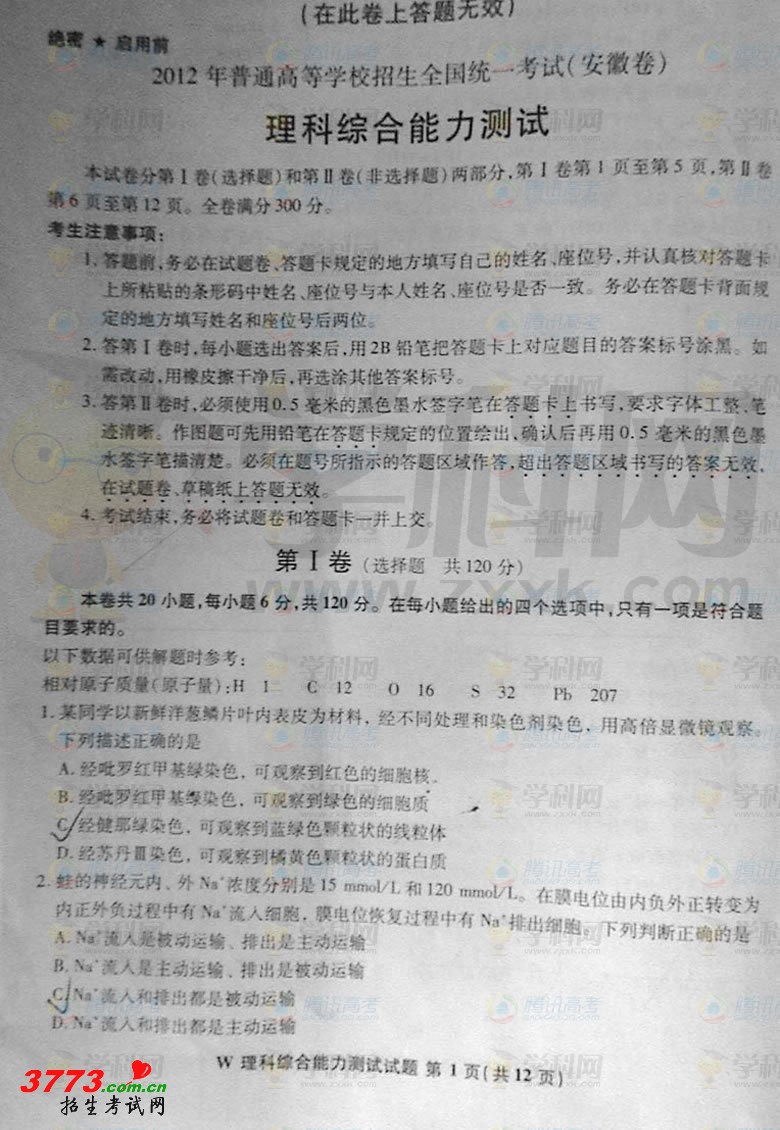 (在此卷上答题无效)
绝密 ★ 启用前
2012年普通高等学校招生全国统一考试(安徽卷)
理科综合能力测试
本试卷分第Ⅰ卷(选择题)和第Ⅱ卷(非选择题)两部分,第Ⅰ卷第1页至第5页,第Ⅱ卷
第6页至第12页。全卷满分300分。
考生注意事项:
1.答题前,务必在试题卷、答题卡规定的地方填写自己的姓名、座位号,并认真核对答题卡
上所粘贴的条形码中姓名、座位号与本人姓名、座位号是否一致。务必在答题卡背面规
定的地方填写姓名和座位号后两位。
2.答第Ⅰ卷时,每小题选出答案后,用2B铅笔把答题卡上对应题目的答案标号涂黑。如
需改动,用橡皮擦干净后,再选涂其他答案标号。
3.答第Ⅱ卷时,必须使用0.5毫米的黑色墨水签字笔在答题卡上书写,要求字体工整、笔
迹清晰。作图题可先用铅笔在答题卡规定的位置绘出,确认后再用0.5毫米的黑色墨
水签字笔描清楚。必须在题号所指示的答题区域作答,超出答题区域书写的答案无效,
在试题卷、草稿纸上答题无效。
4.考试结束,务必将试题卷和答题卡一并上交。
第Ⅰ卷(选择题 共120分)
本卷共20小题,每小题6分,共120分。在每小题给出的四个选项中,只有一项是符合题
目要求的。
以下数据可供解题时参考:
相对原子质量(原子量):H 1 C 12 O 16 S 32 Pb 207
1.某同学以新鲜洋葱鳞片叶内表皮为材料,经不同处理和染色剂染色,用高倍显微镜观察。
下列描述正确的是
A.经吡罗红甲基绿染色,可观察到红色的细胞核
B.经吡罗红甲基绿染色,可观察到绿色的细胞质
C.经健那绿染色,可观察到蓝绿色颗粒状的线粒体
D.经苏丹Ⅲ染色,可观察到橘黄色颗粒状的蛋白质
2.蛙的神经元内、外Na⁺浓度分别是15 mmol/L和120 mmol/L。在膜电位由内负外正转变为
内正外负过程中有Na⁺流入细胞,膜电位恢复过程中有Na⁺排出细胞。下列判断正确的是
A.Na⁺流入是被动运输、排出是主动运输
B.Na⁺流入是主动运输、排出是被动运输
C.Na⁺流入和排出都是被动运输
D.Na⁺流入和排出都是主动运输
W 理科综合能力测试试题 第1页(共12页)
3773.com.cn
招生考试网
学科网
www.zxxk.com
腾讯高考